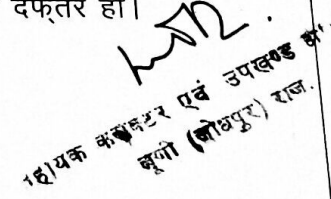 दफ्तर हो।
सहायक कलक्टर एवं उपखण्ड
लूणी (जोधपुर) राज.